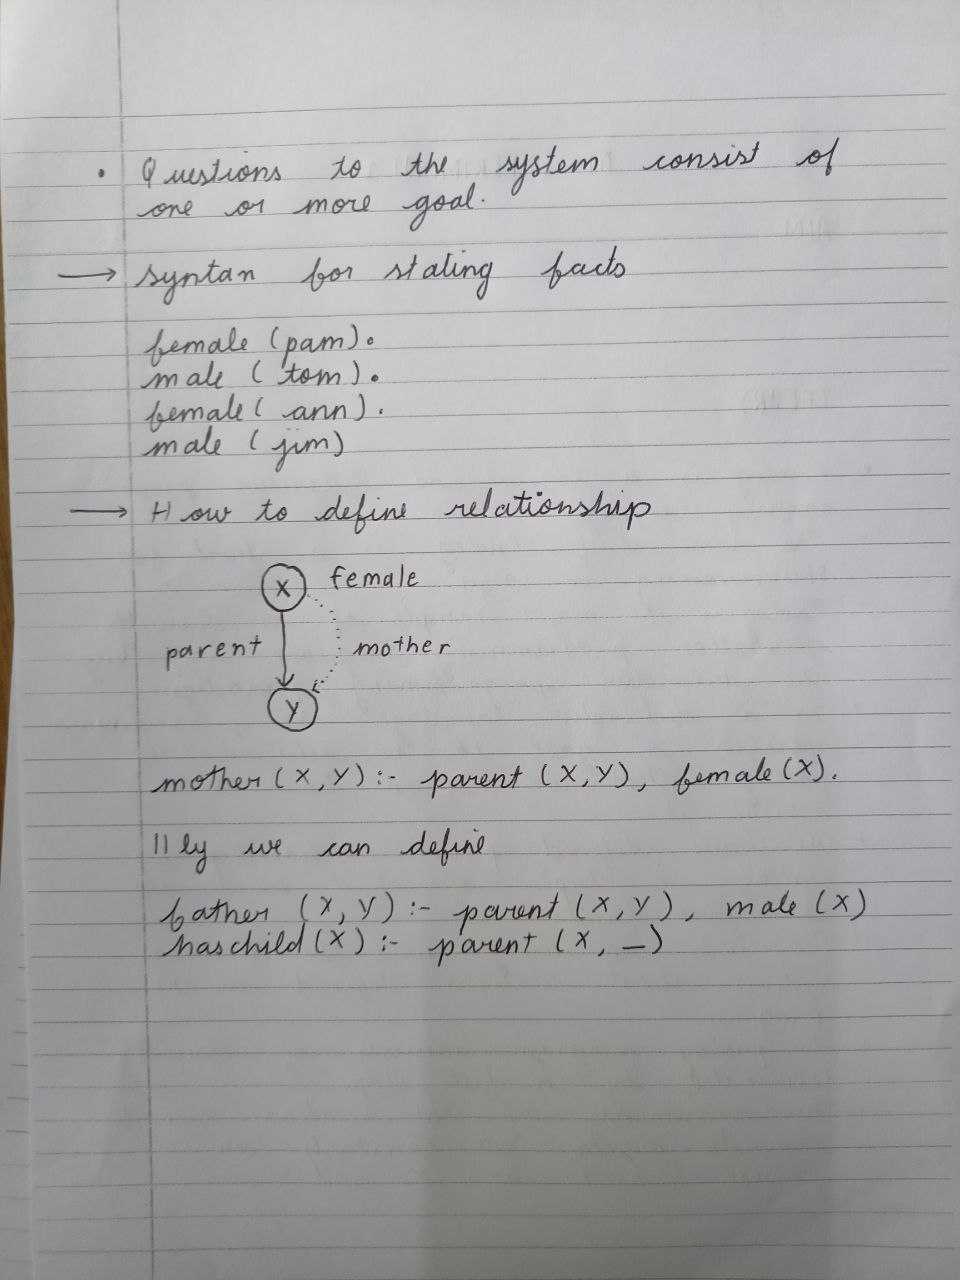 • Questions to the system consist of
one or more goal.
→ syntax for stating facts
female (pam).
male (tom).
female (ann).
male (jim)
→ How to define relationship
X female
parent mother
Y
mother (X, Y) :- parent (X, Y), female (X).
||ly we can define
father (X, Y) :- parent (X, Y), male (X)
haschild (X) :- parent (X, _)